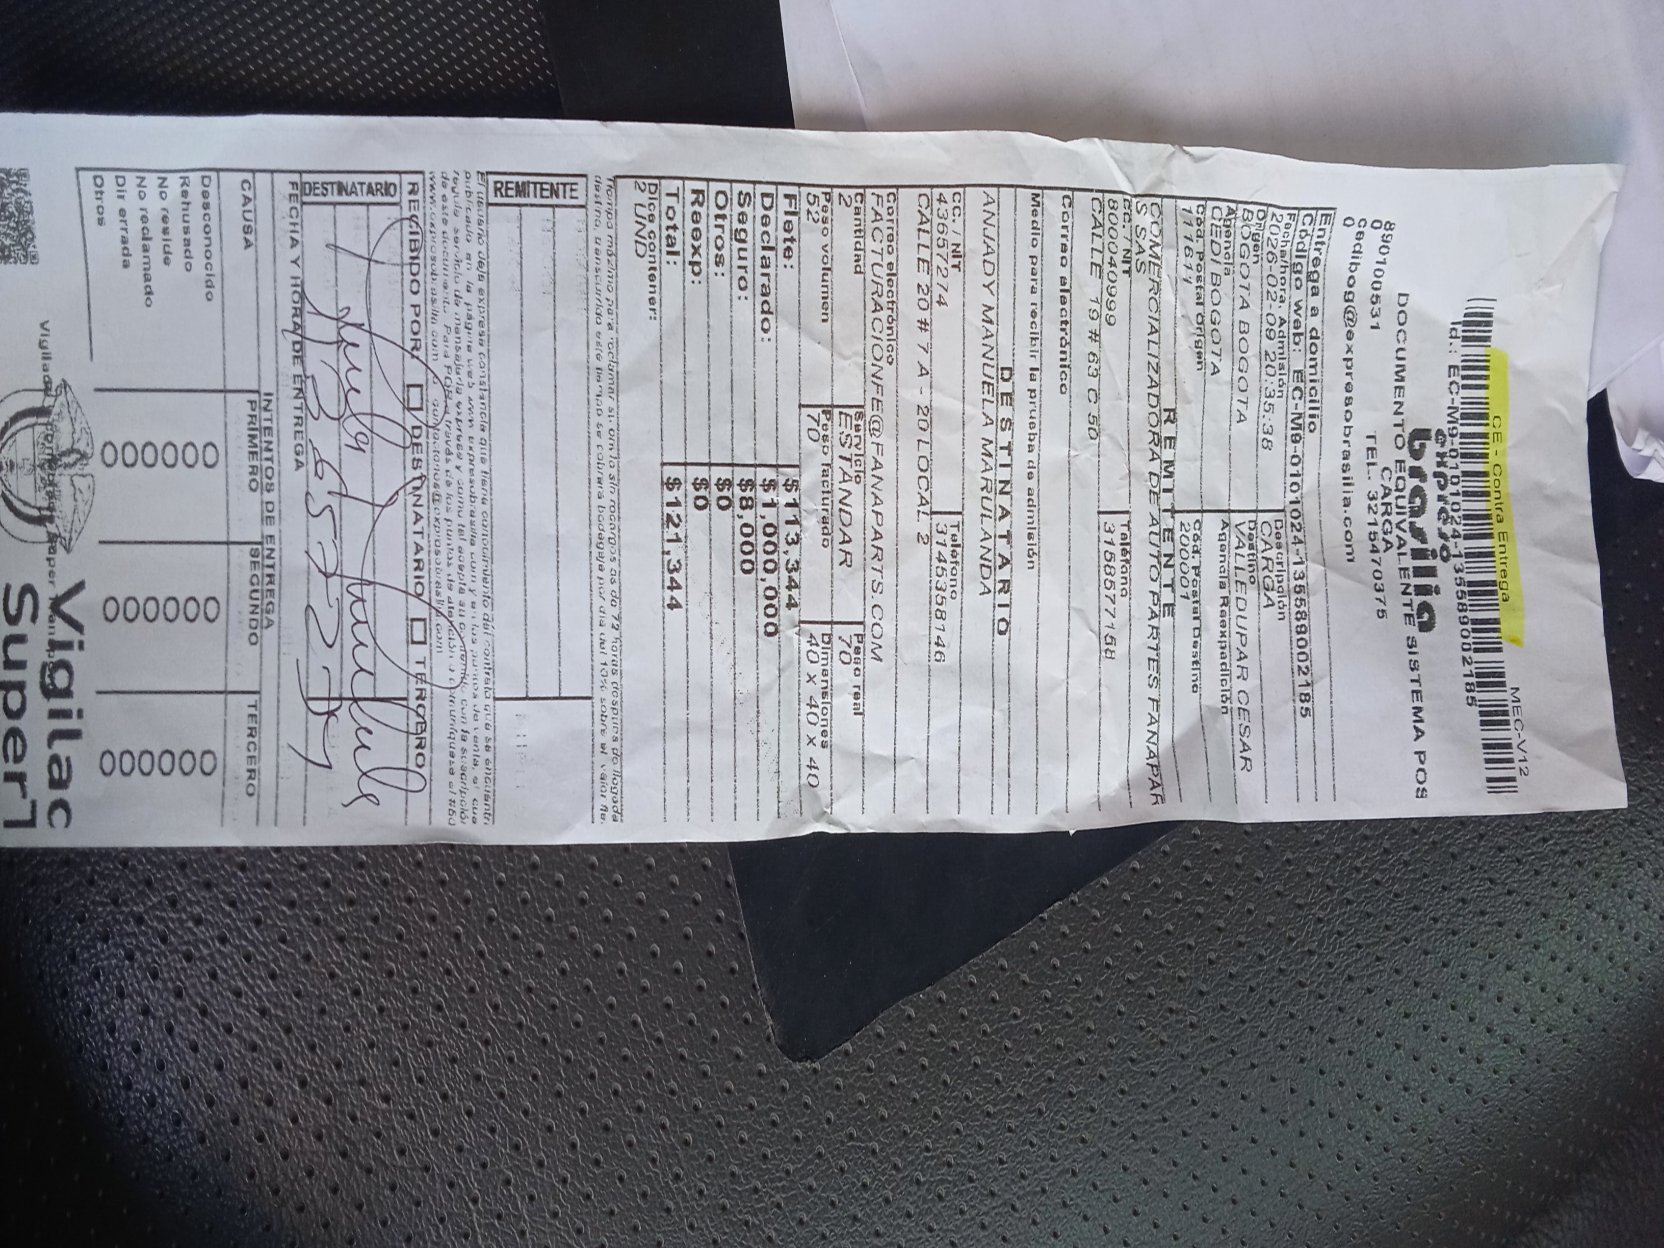 MEC-V12
CE - Contra Entrega
Id.: EC-M9-0101024-135589002185
expreso
brasilia
DOCUMENTO EQUIVALENTE SISTEMA POS
CARGA
890100531 TEL. 3215470375
0
cedibog@expresobrasilia.com
0
Entrega a domicilio
Código web: EC-M9-0101024-1355890002185
Fecha/hora. Admisión Descripción
2026-02-09 20:35:38 CARGA
Origen Destino
BOGOTA BOGOTA VALLEDUPAR CESAR
Agencia Agencia Reexpedición
CEDI BOGOTA
Cód. Postal Origen Cód. Postal Destino
111611 200001
REMITENTE
COMERCIALIZADORA DE AUTO PARTES FANAPAR
S SAS
cc. / NIT Teléfono
8000040999 3158577158
CALLE 19 # 63 C 50
Correo electrónico
Medio para recibir la prueba de admisión
DESTINATARIO
ANJADY MANUELA MARULANDA
cc. / NIT Teléfono
43657274 3146358146
CALLE 20 # 7 A - 20 LOCAL 2
Correo electrónico
FACTURACIONFE@FANAPARTS.COM
Cantidad Servicio Peso real
2 ESTÁNDAR 70
Peso volumen Peso facturado Dimensiones
52 70 40 X 40 X 40
Flete: $113,344
Declarado: $1,000,000
Seguro: $8,000
Otros: $0
Reexp: $0
Total: $121,344
Dice contener:
2 UND
Tiempo máximo para reclamar su envío sin recargos es de 72 horas después de llegada
destino, transcurrido este tiempo se cobrará bodegaje por día del 10% sobre el valor
REMITENTE
El usuario deja expresa constancia que tiene conocimiento del contrato que se encuentra
publicado en la página web www.expresobrasilia.com y en los puntos de venta, el cual
regula servicio de mensajería expresa y como tal acepta su contenido con la suscripción
de este documento. Para PQR a través de los puntos de atención o comuníquese al
www.expresobrasilia.com
RECIBIDO POR: DESTINATARIO TERCERO
DESTINATARIO
FECHA Y HORA DE ENTREGA
INTENTOS DE ENTREGA
CAUSA PRIMERO SEGUNDO TERCERO
Desconocido
Rehusado
No reside
No reclamado
Dir errada
Otros
Vigilac
SuperT